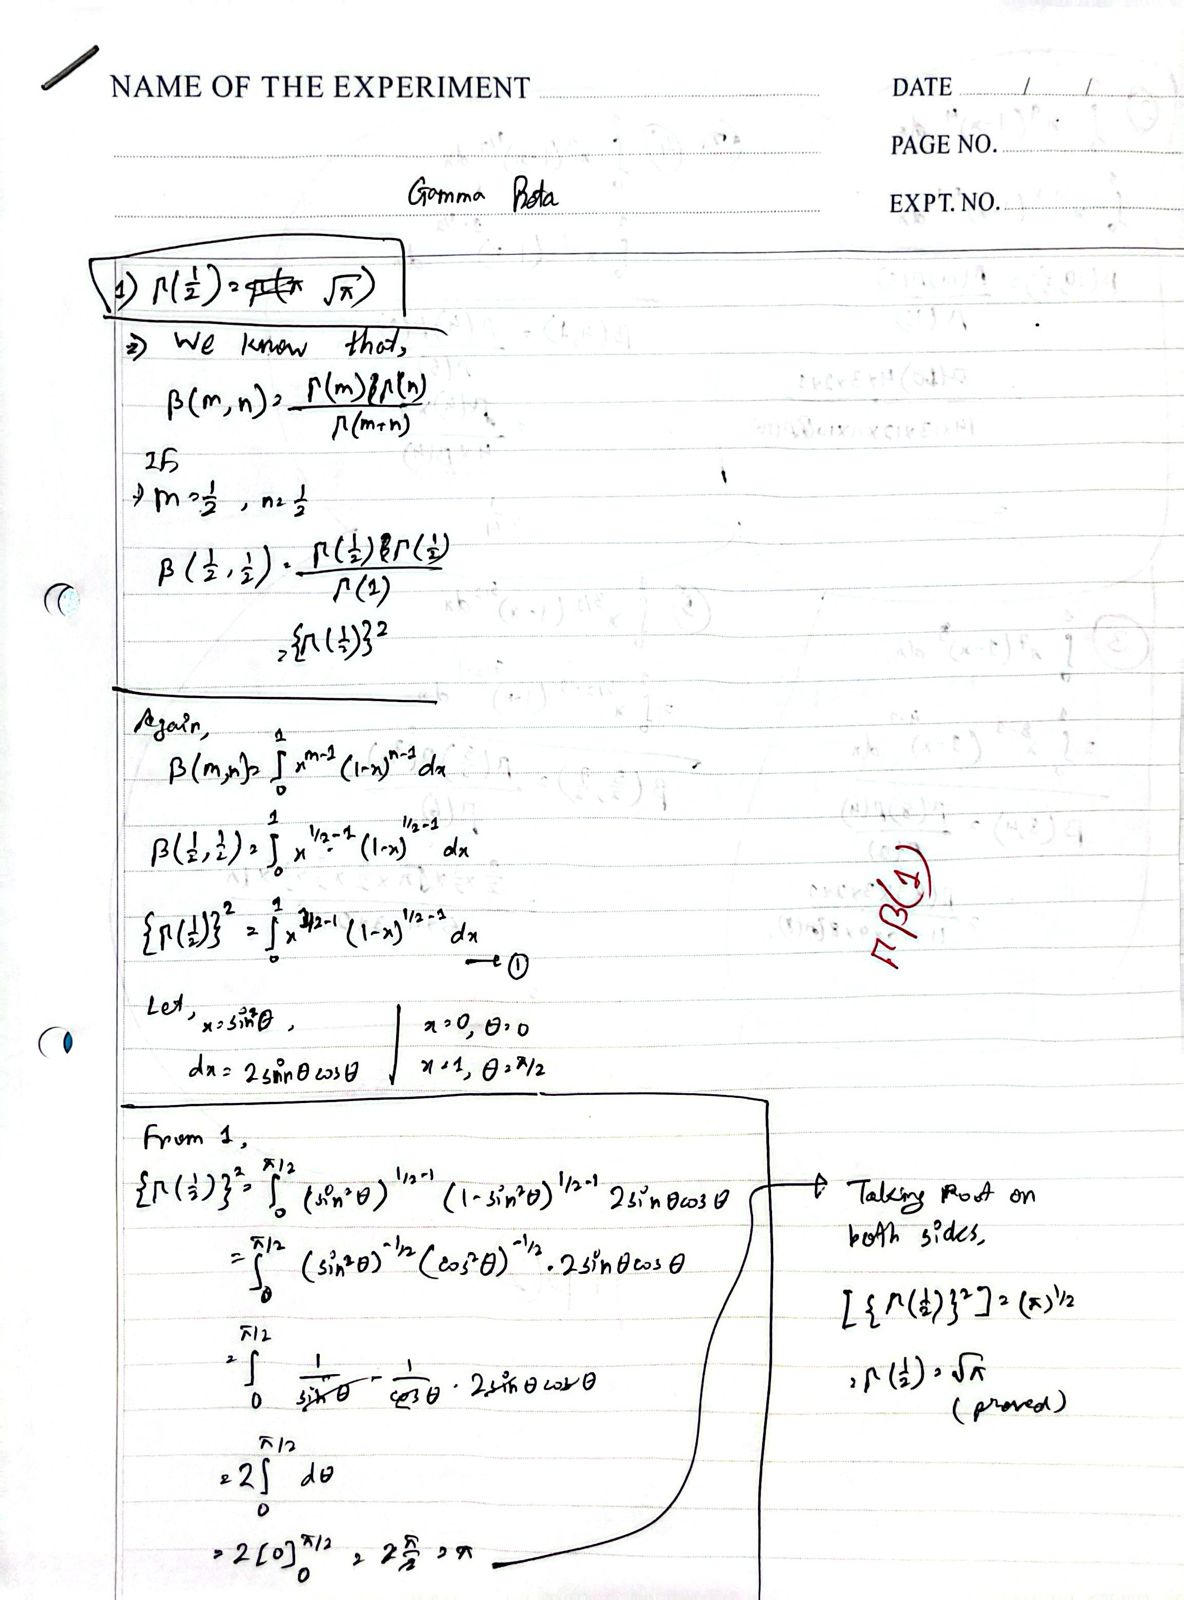 NAME OF THE EXPERIMENT
DATE / /
PAGE NO.
EXPT. NO.
Gamma Beta
1) Γ(1/2) = √π)
⇒ We know that,
β(m, n) = Γ(m) Γ(n) / Γ(m+n)
If
⇒ m = 1/2 , n = 1/2
β(1/2, 1/2) = Γ(1/2) Γ(1/2) / Γ(1)
= {Γ(1/2)}²
Again,
β(m,n) = ∫₀¹ x^(m-1) (1-x)^(n-1) dx
β(1/2, 1/2) = ∫₀¹ x^(1/2-1) (1-x)^(1/2-1) dx
{Γ(1/2)}² = ∫₀¹ x^(1/2-1) (1-x)^(1/2-1) dx
→ ①
Let, x = sin²θ, | x = 0, θ = 0
dx = 2 sinθ cosθ | x = 1, θ = π/2
From 1,
{Γ(1/2)}² = ∫₀^(π/2) (sin²θ)^(1/2-1) (1-sin²θ)^(1/2-1) 2 sinθ cosθ
= ∫₀^(π/2) (sin²θ)^(-1/2) (cos²θ)^(-1/2) . 2 sinθ cosθ
= ∫₀^(π/2) 1/sinθ - 1/cosθ . 2 sinθ cosθ
= 2 ∫₀^(π/2) dθ
= 2 [θ]₀^(π/2) = 2 π/2 = π
→ Taking Root on
both sides,
[{Γ(1/2)}²] = (π)^(1/2)
= Γ(1/2) = √π
(proved)
Γ β(1)